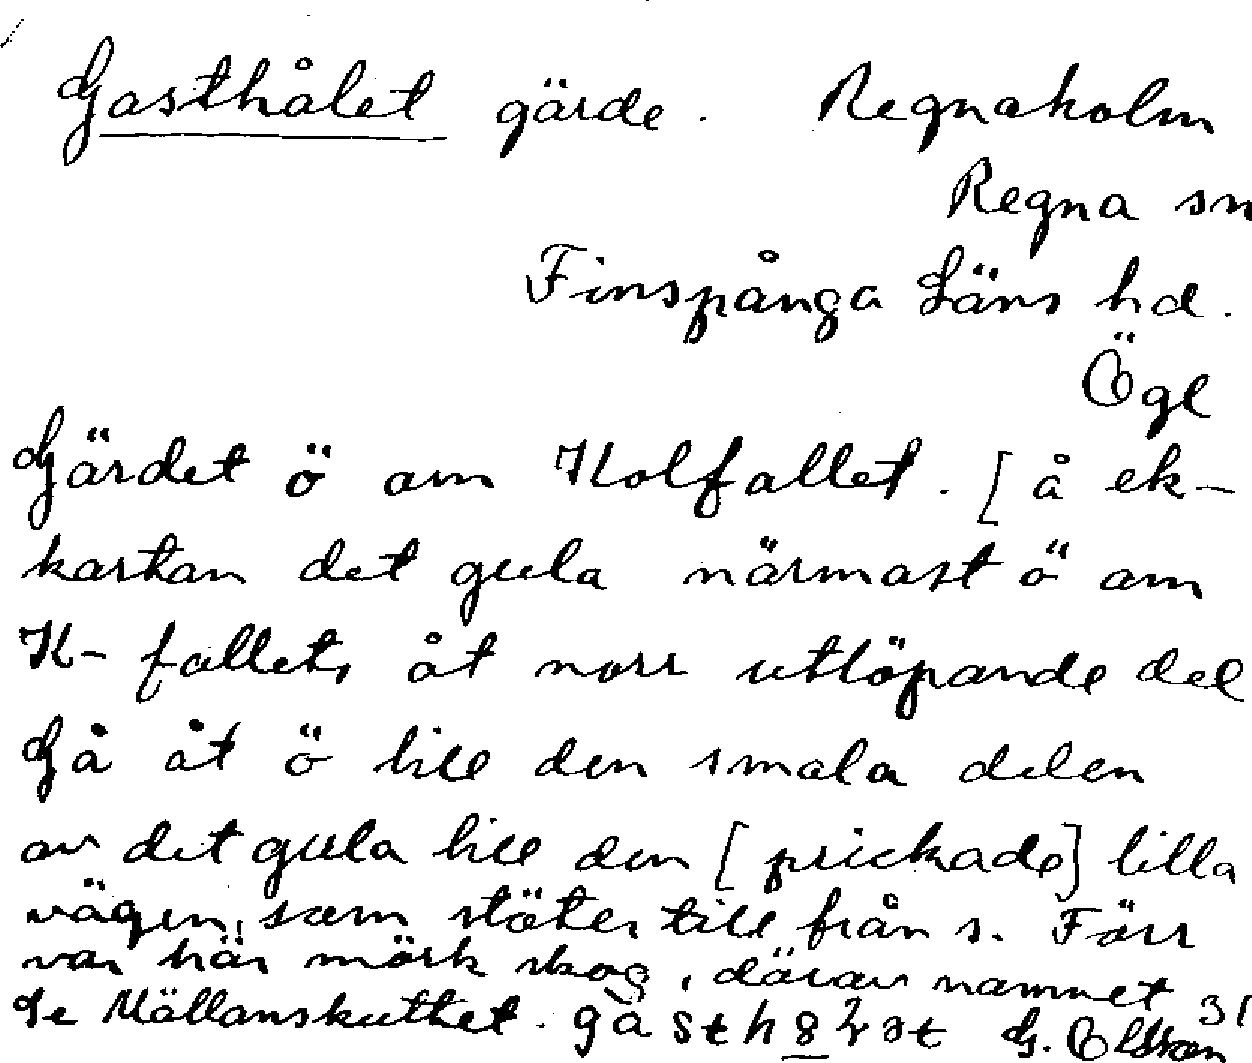 Gasthålet gärde. Regnaholm
Regna sn
Finspånga Läns hd.
Ögl
Gärdet ö om Kolfallet. [å ek-
kartan det gula närmast ö om
K-fallet, åt norr utlöpande del
Gå åt ö till den smala delen
av det gula till den [prickade] lilla
vägen, som stöter till från s. Förr
var här mörk skog, därav namnet
Se Mällanskuthet. 31